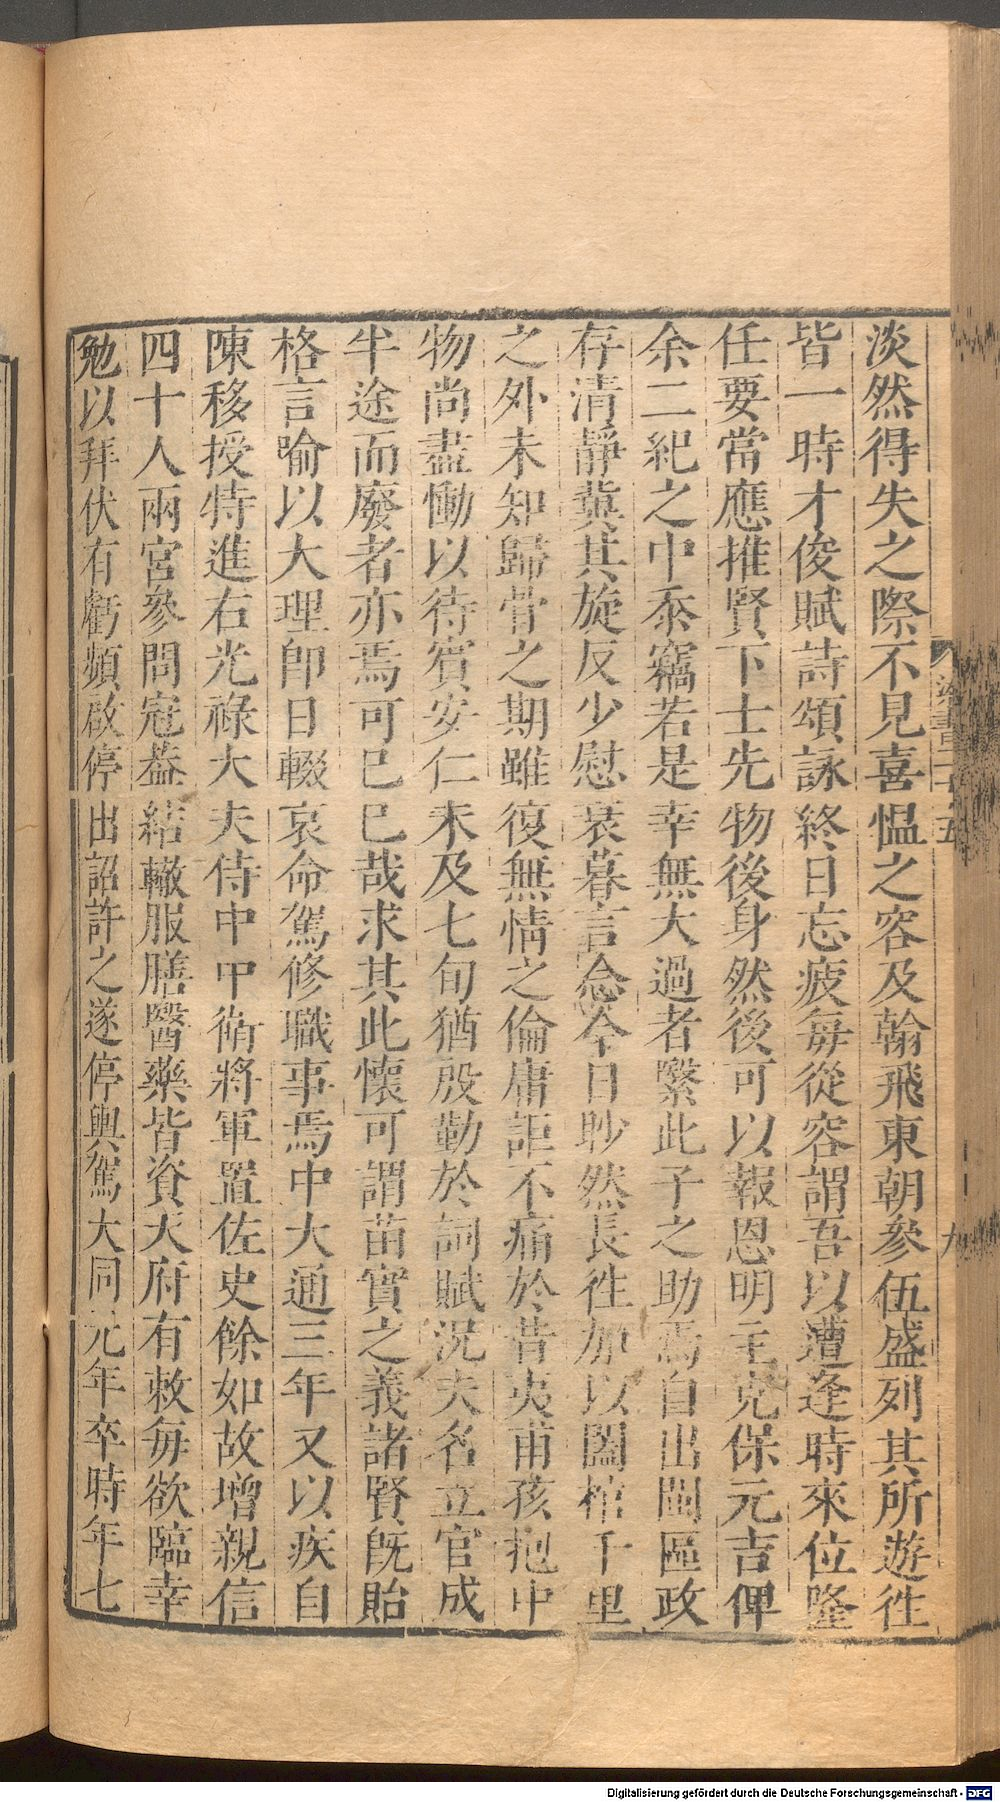 淡然得失之際不見喜慍之容及翰飛東朝參伍盛列其所遊徃
皆一時才俊賦詩頌詠終日忘疲每從容謂吾以遭逢時來位隆
任要當應推賢下士先物後身然後可以報恩明主克保元吉俾
余二紀之中忝竊若是幸無大過者繄此子之助焉自出閫區政
存清靜冀其旋反少慰衰暮言念今日眇然長徃加以闔棺千里
之外未知歸骨之期雖復無情之倫庸詎不痛於昔夷甫孩抱中
物尚盡慟以待賓安仁未及七旬猶殷勤於詞賦況夫名立官成
半途而廢者亦焉可已已哉求其此懷可謂苗實之義諸賢既貽
格言喻以大理卽日輟哀命駕修職事焉中大通三年又以疾自
陳移授特進右光祿大夫侍中中衞將軍置佐史餘如故增親信
四十人兩宮參問冠蓋結轍服膳醫藥皆資天府有敕每欲臨幸
勉以拜伏有虧頻啟停出詔許之遂停輿駕大同元年卒時年七
梁書二十五
九
Digitalisierung gefördert durch die Deutsche Forschungsgemeinschaft - DFG